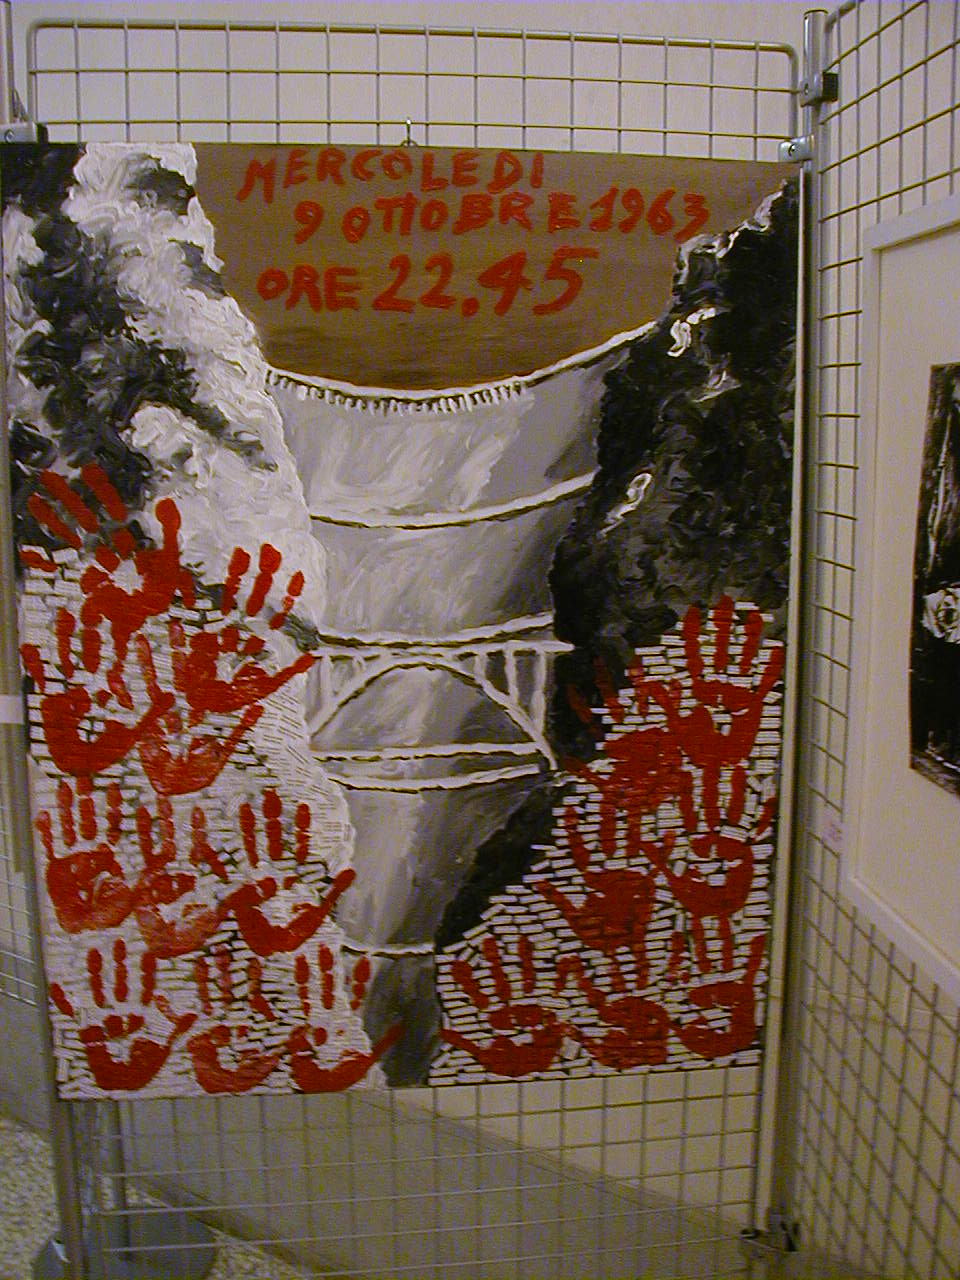 MERCOLEDI
9 OTTOBRE 1963
ORE 22.45